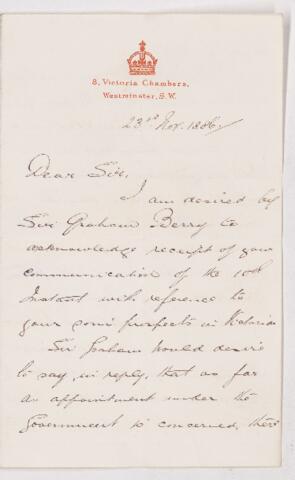 8, Victoria Chambers,
Westminster, S.W.
23rd Nov. 1886
Dear Sir,
I am desired by
Sir Graham Berry to
acknowledge receipt of your
communication of the 10th
Instant with reference to
your son's prospects in Victoria
Sir Graham would desire
to say, in reply, that as far
as appointment under the
Government is concerned, there